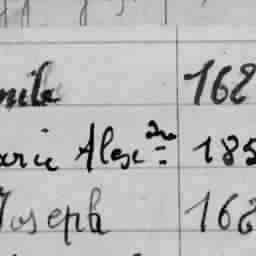 mile 168
arie Alexdre 185
Joseph 168